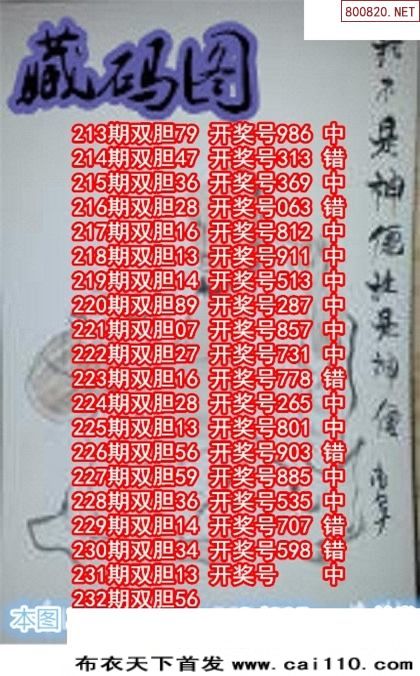 800820.NET
藏码图
213期双胆79 开奖号986 中
214期双胆47 开奖号313 错
215期双胆36 开奖号369 中
216期双胆28 开奖号063 错
217期双胆16 开奖号812 中
218期双胆13 开奖号911 中
219期双胆14 开奖号513 中
220期双胆89 开奖号287 中
221期双胆07 开奖号857 中
222期双胆27 开奖号731 中
223期双胆16 开奖号778 错
224期双胆28 开奖号265 中
225期双胆13 开奖号801 中
226期双胆56 开奖号903 错
227期双胆59 开奖号885 中
228期双胆36 开奖号535 中
229期双胆14 开奖号707 错
230期双胆34 开奖号598 错
231期双胆13 开奖号 中
232期双胆56
本图
布衣天下首发 www.cai110.com